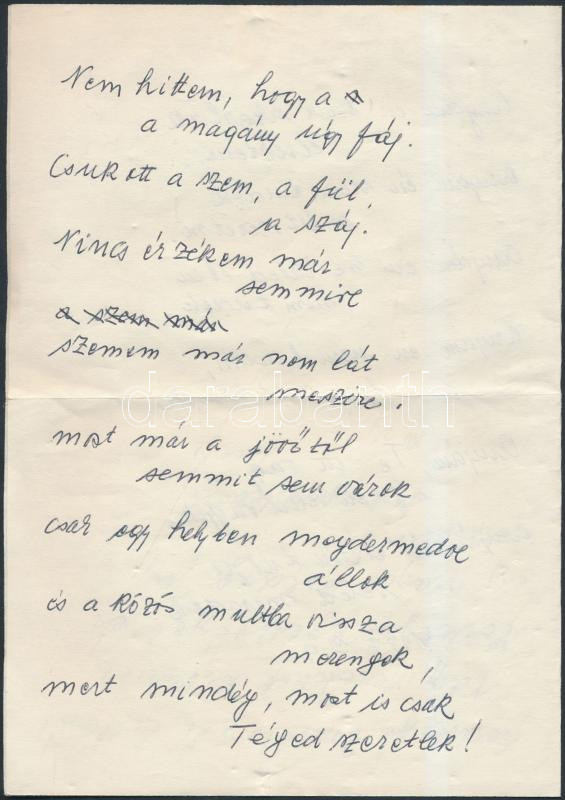 Nem hittem, hogy a
a magány úgy fáj.
Csukott a szem, a fül,
a száj.
Nincs érzékem már
semmire
a szem már
szemem már nem lát
meszire.
most már a jövőtől
semmit sem várok
csak egy helyben megdermedve
állok
és a közös multba vissza
merengek,
mert mindég, most is csak
Téged szeretlek!
darabanth